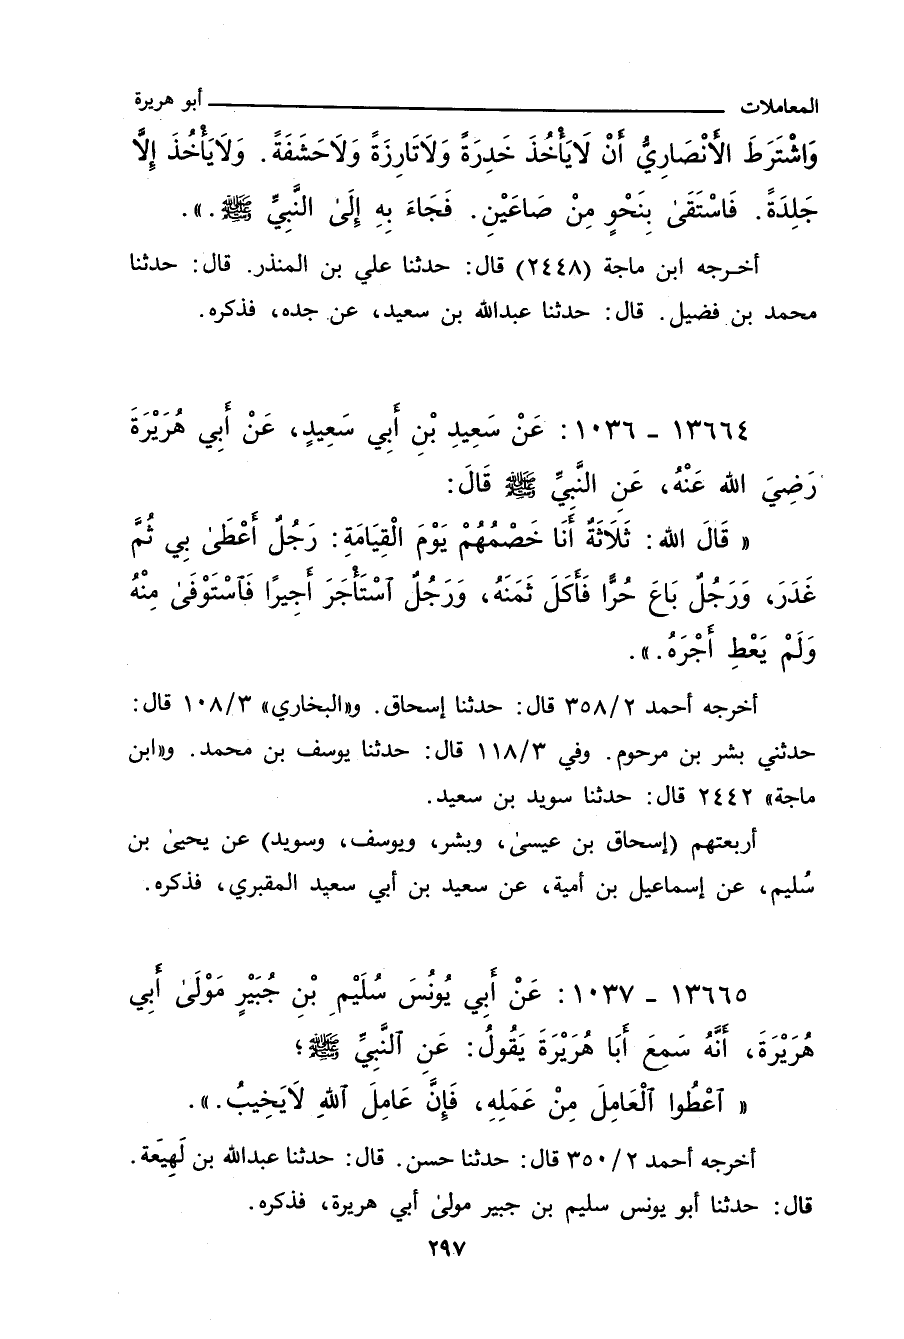 المعاملات أبو هريرة
وَاشْتَرَطَ الأَنْصَارِيُّ أَنْ لَايَأْخُذَ خَدِرَةً وَلَاتَارِزَةً وَلَاحَشَفَةً. وَلَايَأْخُذَ إِلَّا
جَلِدَةً. فَاسْتَقَىٰ بِنَحْوٍ مِنْ صَاعَيْنِ. فَجَاءَ بِهِ إِلَىٰ النَّبِيِّ ﷺ.».
أخرجه ابن ماجة (٢٤٤٨) قال: حدثنا علي بن المنذر. قال: حدثنا
محمد بن فضيل. قال: حدثنا عبدالله بن سعيد، عن جده، فذكره.
١٣٦٦٤ - ١٠٣٦: عَنْ سَعِيدِ بْنِ أَبِي سَعِيدٍ، عَنْ أَبِي هُرَيْرَةَ
رَضِيَ الله عَنْهُ، عَنِ النَّبِيِّ ﷺ قَالَ:
« قَالَ الله: ثَلَاثَةٌ أَنَا خَصْمُهُمْ يَوْمَ الْقِيَامَةِ: رَجُلٌ أَعْطَىٰ بِي ثُمَّ
غَدَرَ، وَرَجُلٌ بَاعَ حُرًّا فَأَكَلَ ثَمَنَهُ، وَرَجُلٌ ٱسْتَأْجَرَ أَجِيرًا فَٱسْتَوْفَىٰ مِنْهُ
وَلَمْ يَعْطِ أَجْرَهُ.».
أخرجه أحمد ٣٥٨/٢ قال: حدثنا إسحاق. و«البخاري» ١٠٨/٣ قال:
حدثني بشر بن مرحوم. وفي ١١٨/٣ قال: حدثنا يوسف بن محمد. و«ابن
ماجة» ٢٤٤٢ قال: حدثنا سويد بن سعيد.
أربعتهم (إسحاق بن عيسىٰ، وبشر، ويوسف، وسويد) عن يحيىٰ بن
سُليم، عن إسماعيل بن أمية، عن سعيد بن أبي سعيد المقبري، فذكره.
١٣٦٦٥ - ١٠٣٧: عَنْ أَبِي يُونُسَ سُلَيْمِ بْنِ جُبَيْرٍ مَوْلَىٰ أَبِي
هُرَيْرَةَ، أَنَّهُ سَمِعَ أَبَا هُرَيْرَةَ يَقُولُ: عَنِ ٱلنَّبِيِّ ﷺ؛
« ٱعْطُوا ٱلْعَامِلَ مِنْ عَمَلِهِ، فَإِنَّ عَامِلَ ٱللهِ لَايَخِيبُ.».
أخرجه أحمد ٣٥٠/٢ قال: حدثنا حسن. قال: حدثنا عبدالله بن لَهِيَعة.
قال: حدثنا أبو يونس سليم بن جبير مولىٰ أبي هريرة، فذكره.
٢٩٧